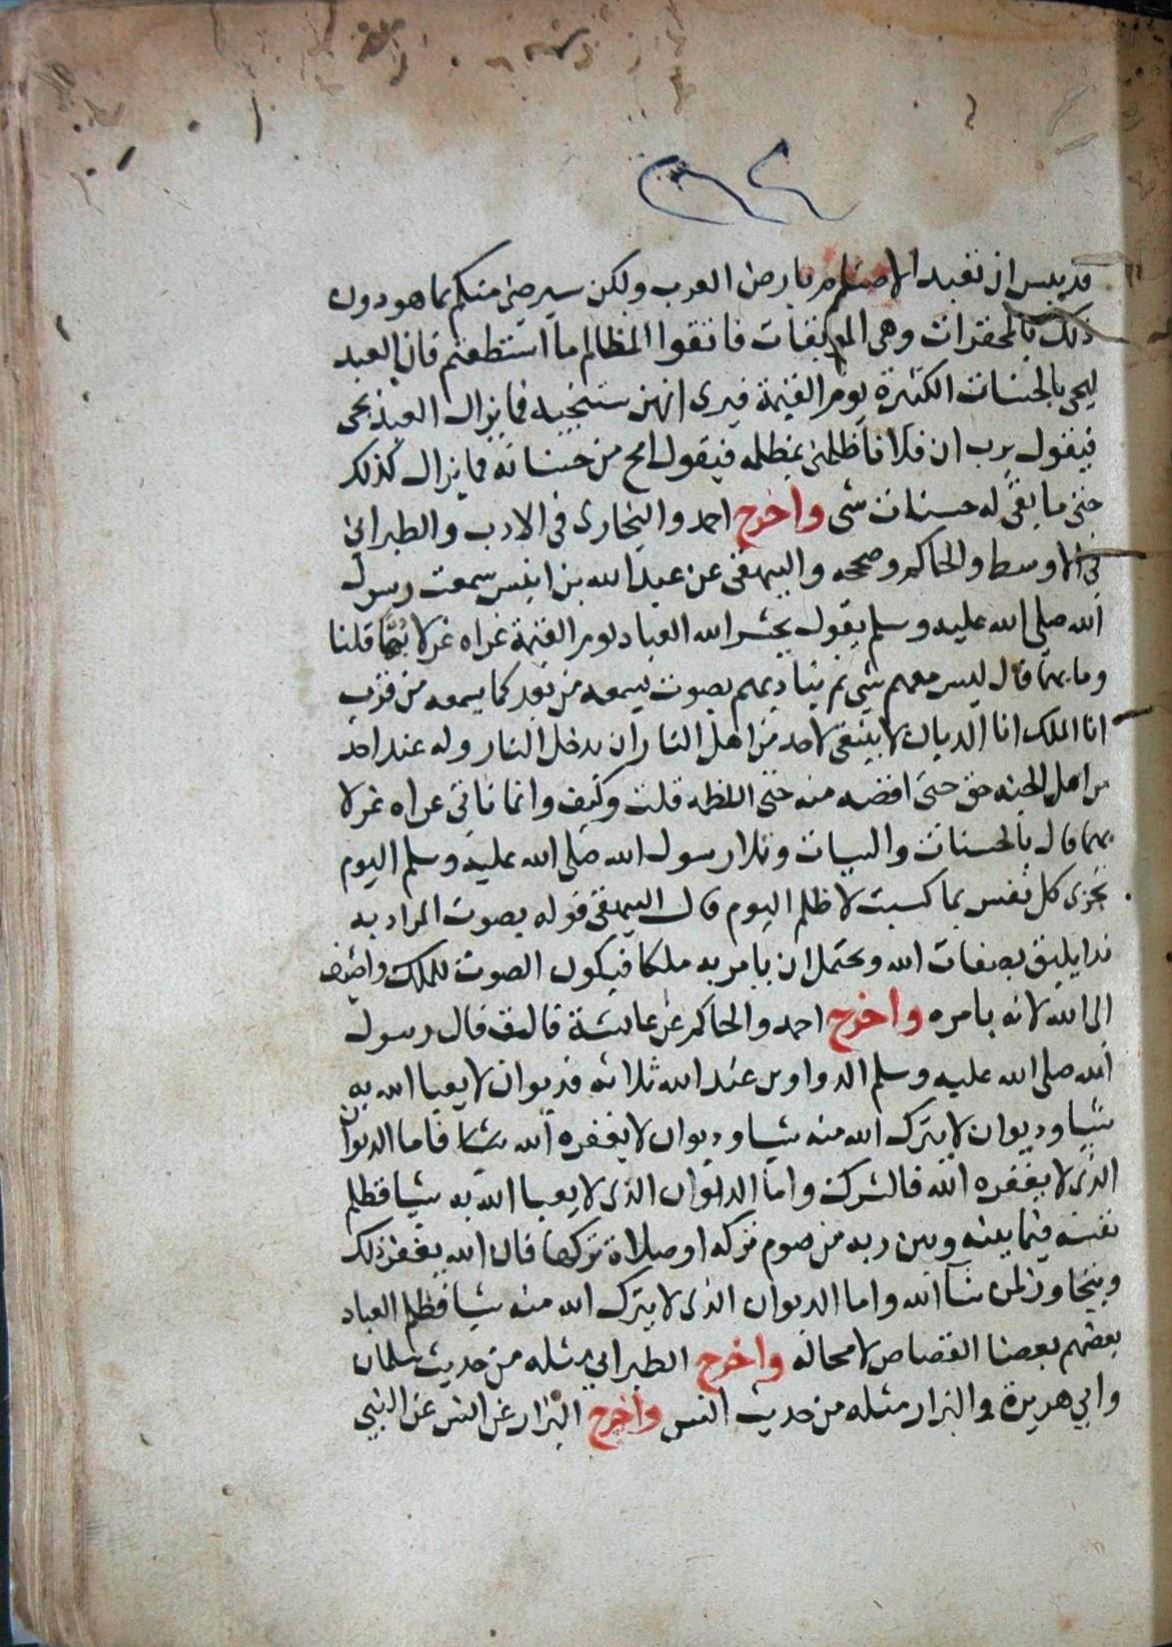 قد يىس ان تعبد الاصنام بارض العرب ولكن سيرضى منكم بما هو دون
ذلك بالمحقرات وهى الموبقات فاتقوا المظالم ما استطعتم فان العبد
ليجى بالحسنات الكثيرة يوم القيمة فيرى انهن ستنجيه فما يزال العبد يجى
فيقول يرب ان فلانا ظلمنى بمظلمه فيقول امح من حسناته فما يزال كذلك
حتى ما بقى له حسنات شى واخرج احمد والبخارى فى الادب والطبرانى
فى الاوسط والحاكم وصححه والبيهقى عن عبد الله بن انيس سمعت رسول
الله صلى الله عليه وسلم يقول يحشر الله العباد يوم القيمة عراه غرلا بُهْمًا قلنا
وما بهما قال ليس معهم شى ثم يناديهم بصوت يسمعه من بعد كما يسمعه من قرب
انا الملك انا الديان لا ينبغى لاحد من اهل النار ان يدخل النار وله عند احد
من اهل الجنه حق حتى اقضه منه حتى اللطمه قلت وكيف وانما ناتى عراه غرلا
بهما قال بالحسنات والسيات وتلا رسول الله صلى الله عليه وسلم اليوم
تجزى كل نفس بما كسبت لا ظلم اليوم قال البيهقى قوله بصوت المراد به
ندا يليق بصفات الله ويحتمل ان يامر به ملكا فيكون الصوت للملك واضيف
الى الله لانه بامره واخرج احمد والحاكم عن عايشة قالت قال رسول
الله صلى الله عليه وسلم الدواوين عند الله ثلاثه فديوان لا يعبا الله به
شيا وديوان لا يترك الله منه شيا وديوان لا يغفره الله شيا فاما الديوان
الذى لا يغفره الله فالشرك واما الديوان الذى لا يعبا الله به شيا فظلم
نفسه فيما بينه وبين ربه من صوم تركه او صلاة تركها فان الله يغفر ذلك
ويتجاوز لمن شآ الله واما الديوان الذى لا يترك الله منه شيا فظلم العباد
بعضهم بعضا القصاص لا محاله واخرج الطبرانى مثله من حديث سلمان
وابي هريرة والبزار مثله من حديث انس واخرج البزار عن انس عن النبي